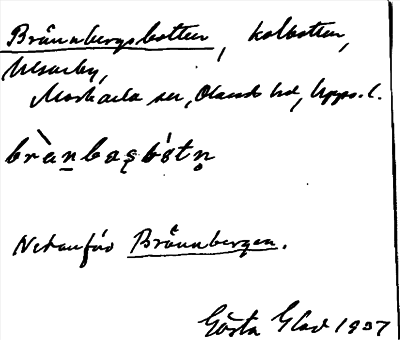 Brännbergsbotten, kolbotten,
Ulvarby,
Markarla sn, Olands hd, Upps. l.
brànbæsbótn
Nedanför Brännbergen.
Gösta Glad 1937